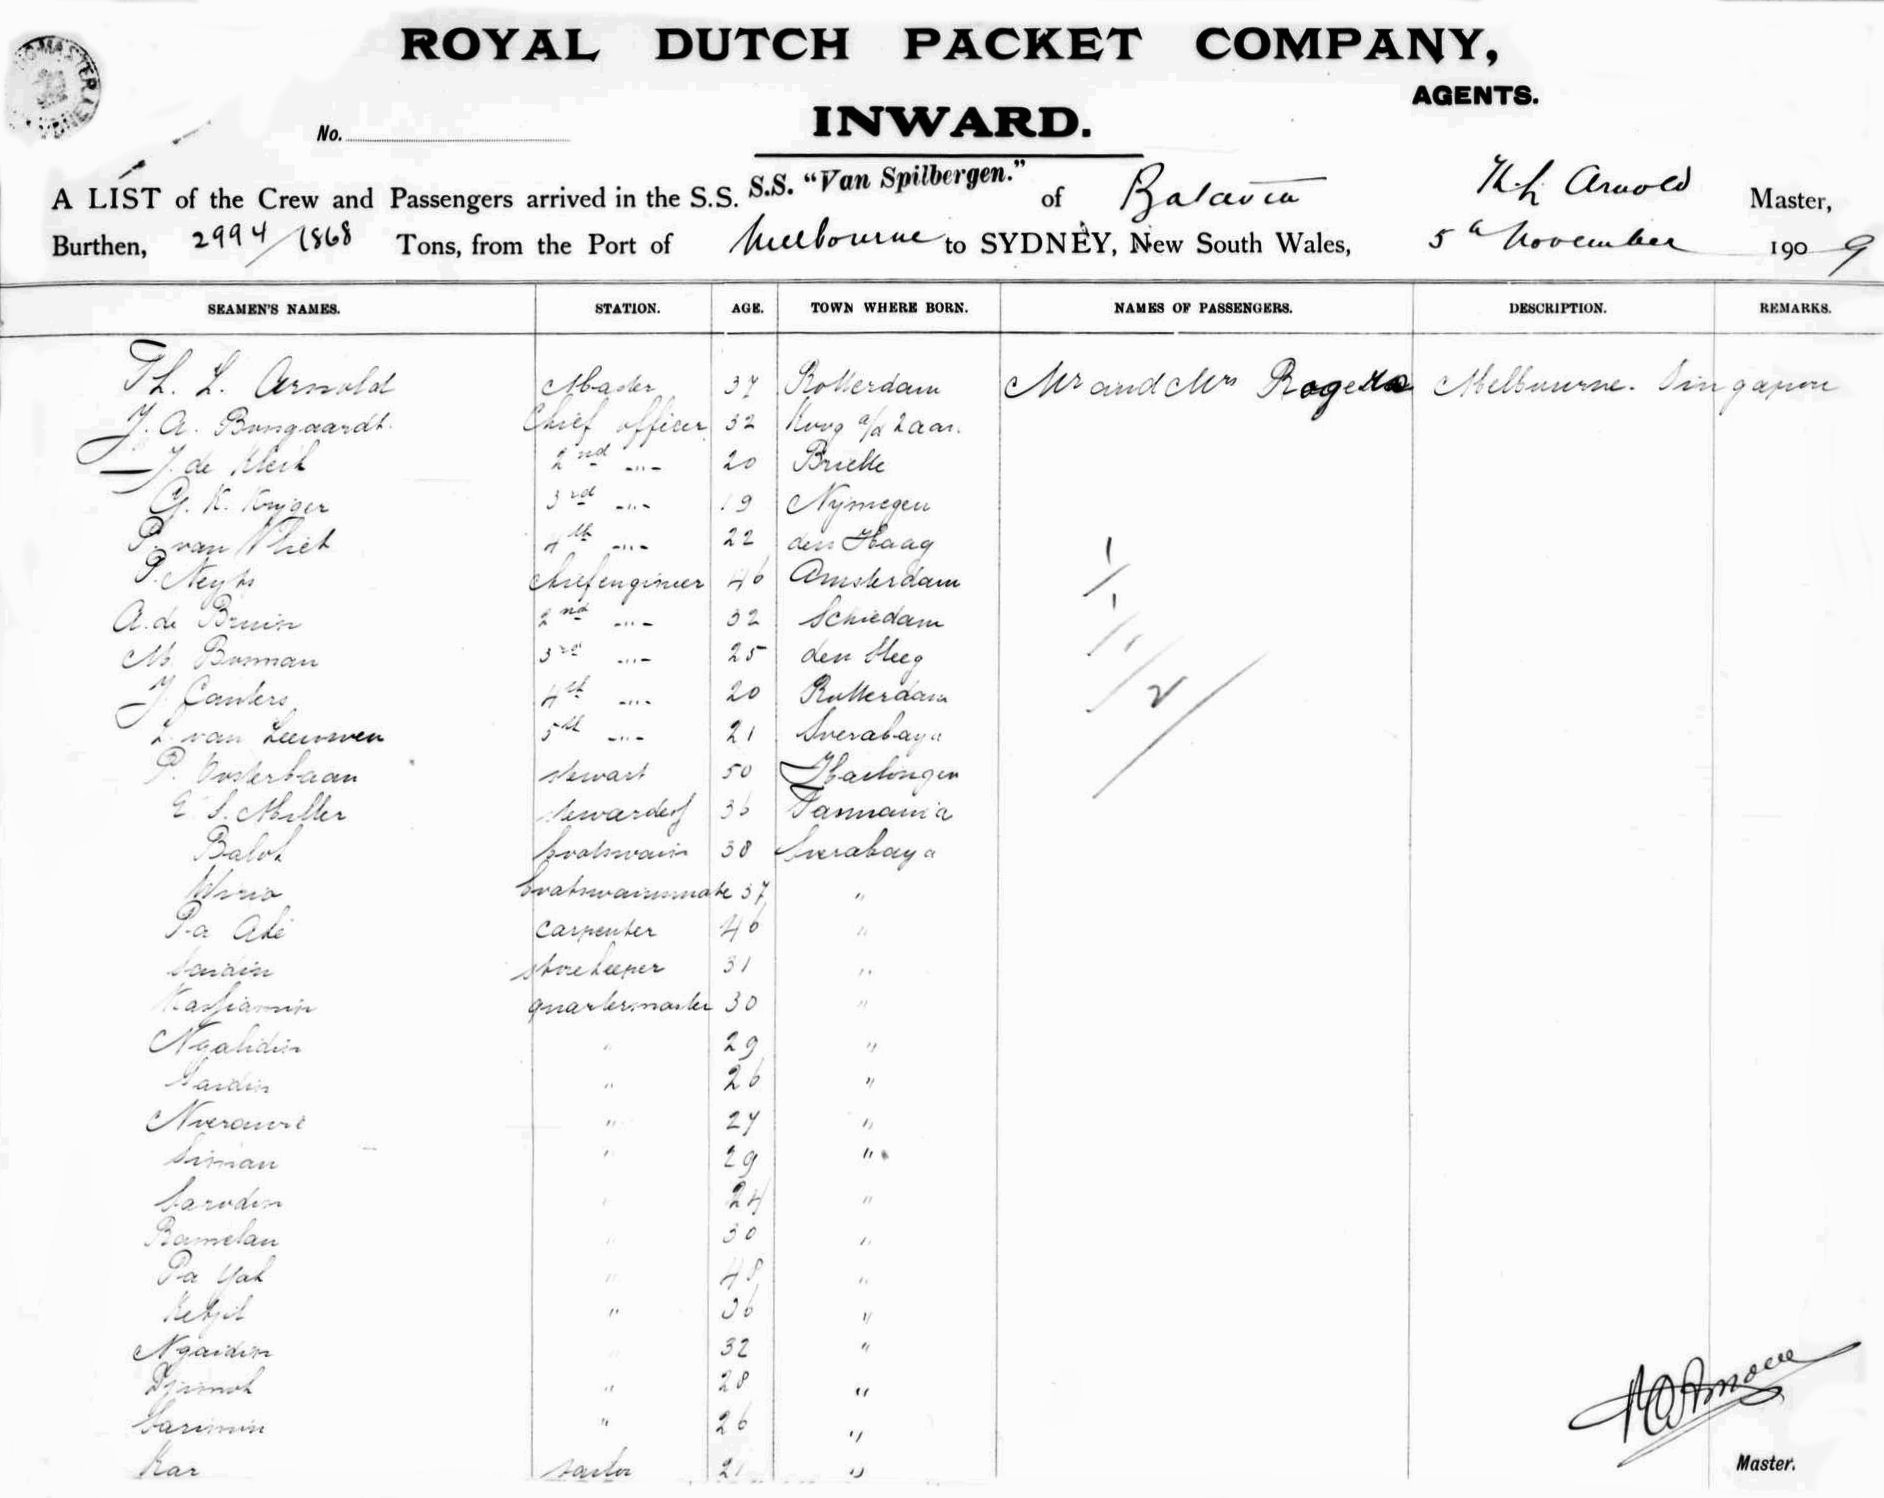 ROYAL DUTCH PACKET COMPANY,
AGENTS.
INWARD.
No.
A LIST of the Crew and Passengers arrived in the S.S. S.S. "Van Spilbergen." of Batavia Th. L. Arnold Master,
Burthen, 2994/1868 Tons, from the Port of Melbourne to SYDNEY, New South Wales, 5th November 1909
SEAMEN'S NAMES. STATION. AGE. TOWN WHERE BORN. NAMES OF PASSENGERS. DESCRIPTION. REMARKS.
Th. L. Arnold Master 37 Rotterdam Mr and Mrs Melbourne. Singapore
J. A. Bongaardt. Chief officer 32 Koog a/d Zaan.
J. de 2nd -"- 20 Brielle
G. K. Kryger 3rd -"- 19 Nymegen
P. van Vliet 4th -"- 22 den Haag
P. chief engineer 46 Amsterdam
A. de Bruin 2nd -"- 32 Schiedam
M. Bosman 3rd -"- 25 den
J. Canters 4th -"- 20 Rotterdam
L. van Leeuwen 5th -"- 21 Soerabaya
P. Oosterbaan stewart 50 Harlingen
E. S. Miller stewardess 36 Tasmania
boatswain 38 Soerabaya
Wirio boatswainsmate 37 "
Pa carpenter 46 "
Saidin storekeeper 31 "
quartermaster 30 "
" 29 "
Sardin " 26 "
" 27 "
Siman " 29 "
Sarodin " 24 "
Ramelan " 30 "
Pa " 48 "
Ketjil " 36 "
Ngaidin " 32 "
" 28 "
Sarimin " 26 "
Kar sailor 21 "
Master.